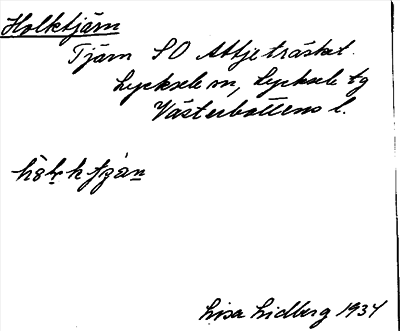 Holktjärn
Tjärn SO Attjeträsket.
Lycksele sn, Lycksele tg
Västerbottens l.
Lisa Lidberg 1934